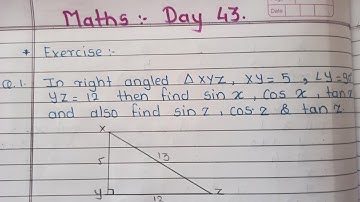 Maths :- Day 43.
Date
* Exercise :-
Q.1. In right angled △XYZ, XY = 5, ∠Y=90
YZ = 12 then find sin x, cos x, tan x
and also find sin z, cos z & tan z
X
5
13
Y
Z
12